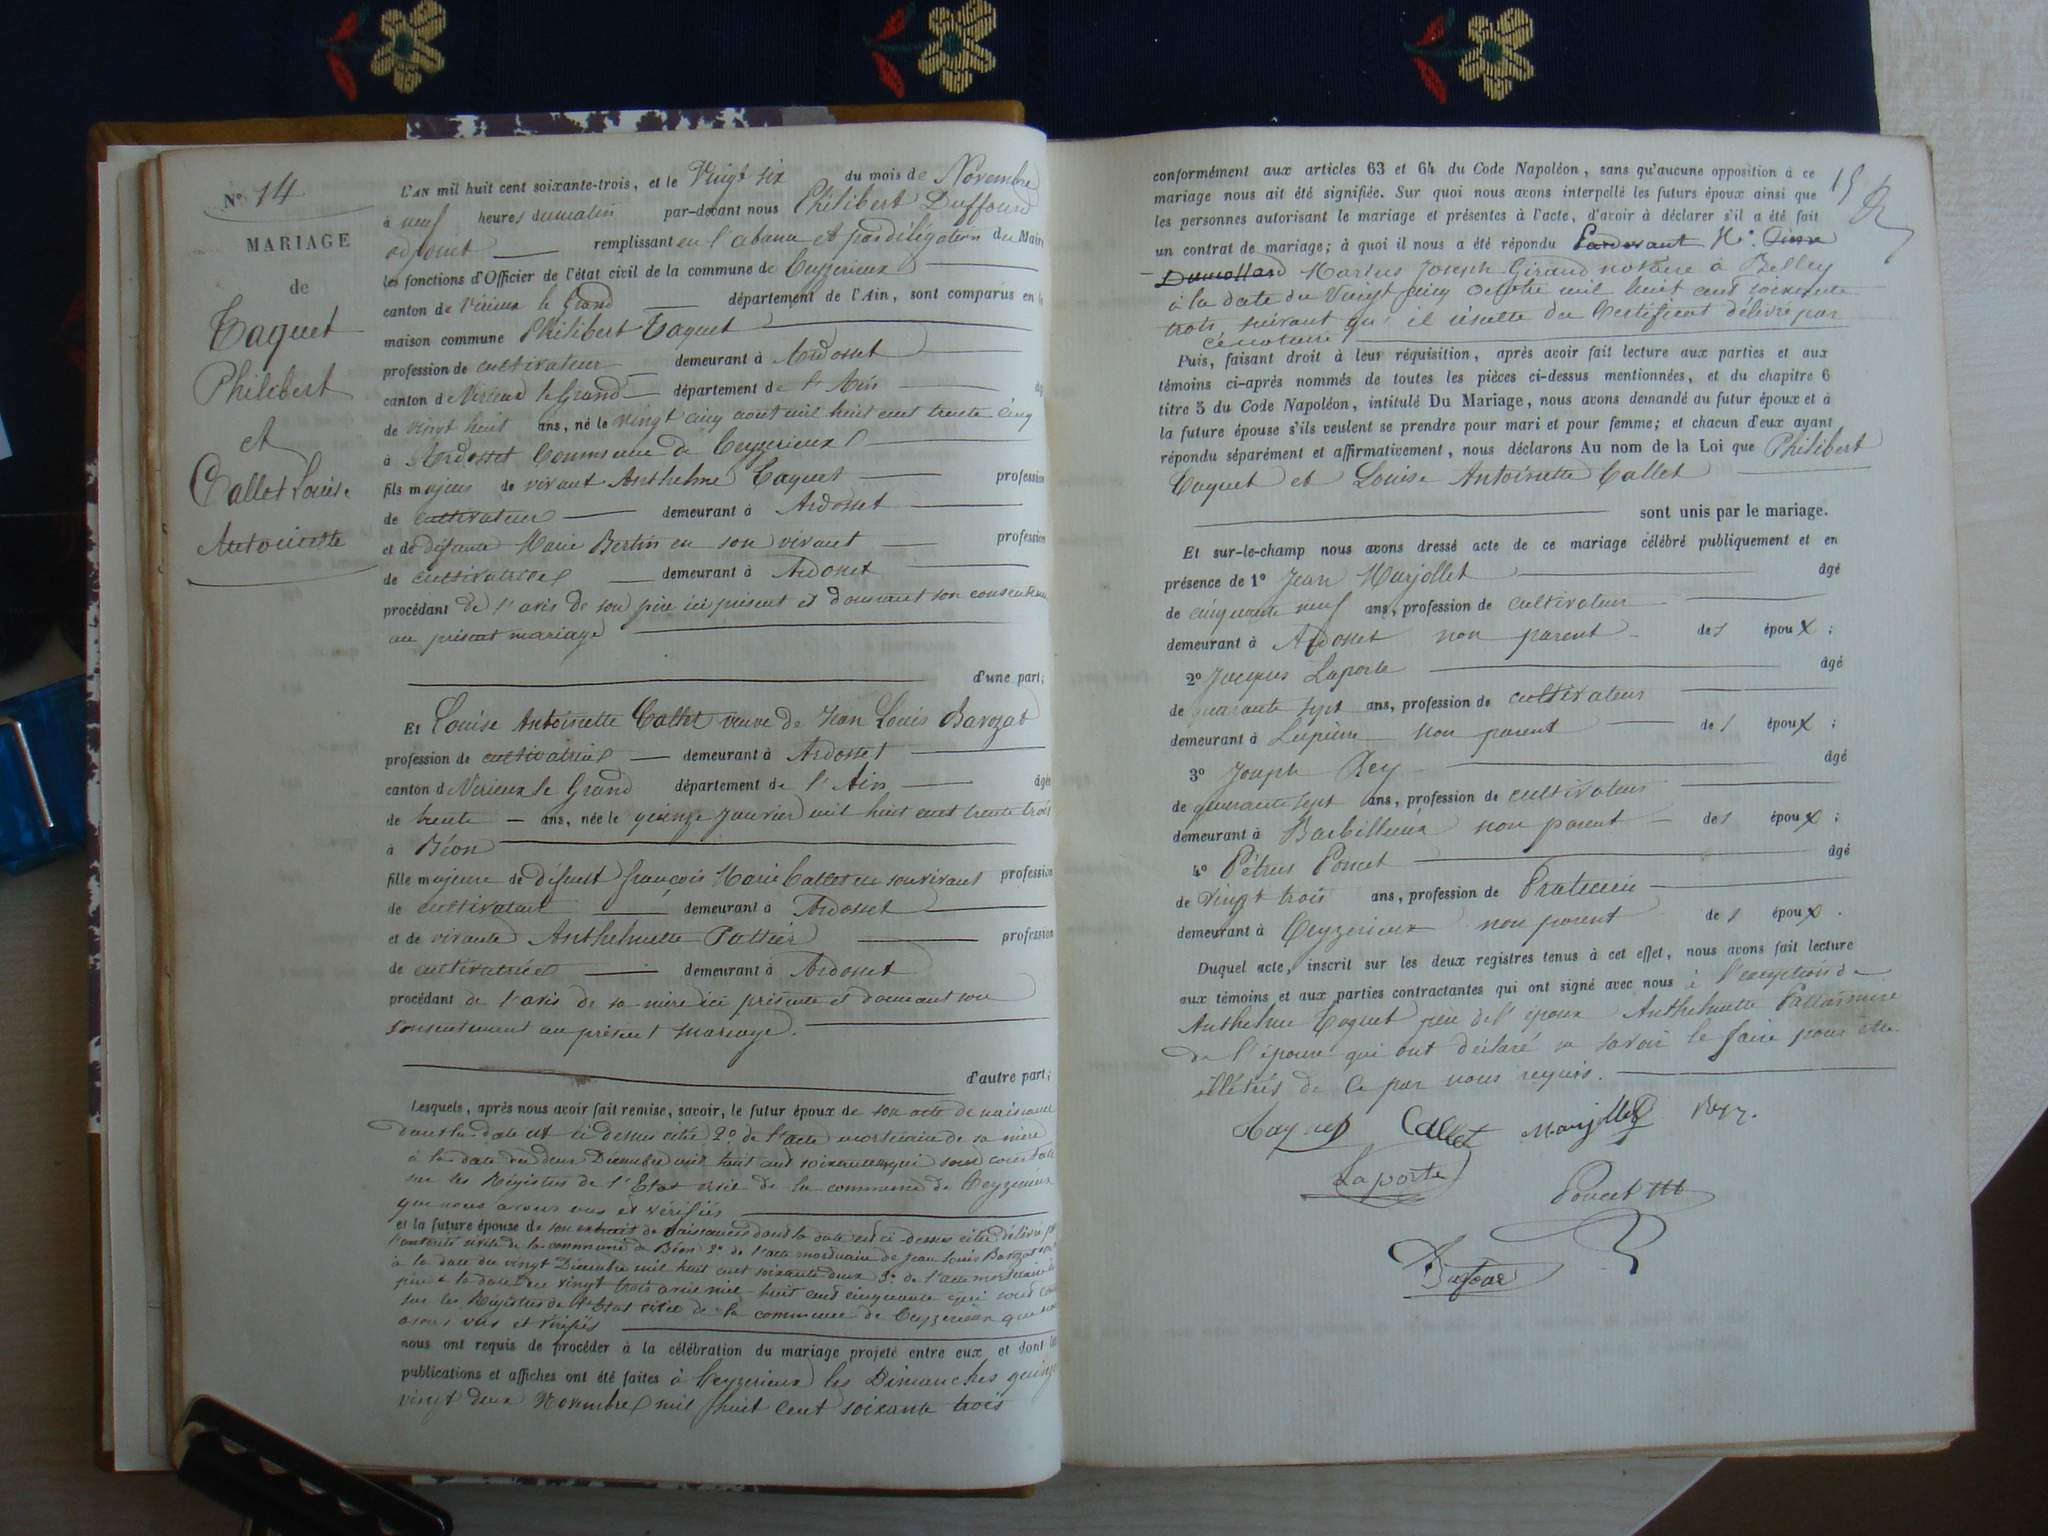 N° 14
MARIAGE
de
Taquet
Philibert
et
Callet Louise
Antoinette
L'AN mil huit cent soixante-trois, et le Vingt six du mois de Novembre
à neuf heures du matin par-devant nous Philibert Duffour
adjoint remplissant en l'absence et par délégation du Maire
les fonctions d'Officier de l'état civil de la commune de Ceyzerieux
canton de Virieux le Grand département de l'Ain, sont comparus en la
maison commune Philibert Taquet
profession de cultivateur demeurant à Ardosset
canton d Virieux le Grand département de l'Ain âgé
de vingt huit ans, né le vingt cinq aout mil huit cent trente cinq
à Ardosset Commune de Ceyzerieux
fils majeur de vivant Anthelme Taquet profession
de cultivateur demeurant à Ardosset
et de défunte Marie Bertin en son vivant profession
de cultivatrice demeurant à Ardosset
procédant de l'avis de son père ici présent et donnant son consentement
au présent mariage
d'une part;
Et Louise Antoinette Callet veuve de Jean Louis Barozat
profession de cultivatrice demeurant à Ardosset
canton d Virieux le Grand département de l'Ain âgée
de trente ans, née le quinze Janvier mil huit cent trente trois
à Béon
fille majeure de défunt françois Marie Callet en son vivant profession
de cultivateur demeurant à Ardosset
et de vivante Anthelmette Pattier profession
de cultivatrice demeurant à Ardosset
procédant de l'avis de sa mère ici présente et donnant son
consentement au présent mariage.
d'autre part;
Lesquels, après nous avoir fait remise, savoir, le futur époux de son acte de naissance
dont la date est ci dessus citée 2° de l'acte mortuaire de sa mère
à la date du deux Décembre mil huit cent soixante qui sont constatés
sur les Régistres de l'Etat civil de la commune de Ceyzerieux
que nous avons vus et vérifiés
et la future épouse de son extrait de naissance dont la date est ci-dessus citée délivré par
l'autorité civile de la commune de Béon 2° de l'acte mortuaire de Jean Louis Barozat
à la date du vingt Décembre mil huit cent soixante deux 3° de l'acte mortuaire de
père à la date du vingt trois mil huit cent cinquante qui sont
sur les Régistres de l'Etat civil de la commune de Ceyzerieux que nous
avons vus et vérifiés
nous ont requis de procéder à la célébration du mariage projeté entre eux et dont les
publications et affiches ont été faites à Ceyzerieux les Dimanches quinze
vingt deux Novembre mil huit cent soixante trois
15
conformément aux articles 63 et 64 du Code Napoléon, sans qu'aucune opposition à ce
mariage nous ait été signifiée. Sur quoi nous avons interpellé les futurs époux ainsi que
les personnes autorisant le mariage et présentes à l'acte, d'avoir à déclarer s'il a été fait
un contrat de mariage; à quoi il nous a été répondu Pardevant Me.
Dumollard Marius Joseph Girand notaire à Belley
à la date du Vingt cinq octobre mil huit cent soixante
trois, suivant qu'il résulte du Certificat délivré par
ce notaire
Puis, faisant droit à leur réquisition, après avoir fait lecture aux parties et aux
témoins ci-après nommés de toutes les pièces ci-dessus mentionnées, et du chapitre 6
titre 5 du Code Napoléon, intitulé Du Mariage, nous avons demandé au futur époux et à
la future épouse s'ils veulent se prendre pour mari et pour femme; et chacun d'eux ayant
répondu séparément et affirmativement, nous déclarons Au nom de la Loi que Philibert
Taquet et Louise Antoinette Callet
sont unis par le mariage.
Et sur-le-champ nous avons dressé acte de ce mariage célébré publiquement et en
présence de 1° Jean Marjollet âgé
de cinquante neuf ans, profession de cultivateur
demeurant à Ardosset non parent des époux;
2° Jacques Laporte âgé
de quarante sept ans, profession de cultivateur
demeurant à Lupière non parent des époux;
3° Joseph Rey âgé
de quarante sept ans, profession de cultivateur
demeurant à Barbillieux non parent des époux;
4° Pétrus Poncet âgé
de Vingt trois ans, profession de Praticien
demeurant à Ceyzerieux non parent des époux.
Duquel acte, inscrit sur les deux registres tenus à cet effet, nous avons fait lecture
aux témoins et aux parties contractantes qui ont signé avec nous à l'exception de
Anthelme Taquet père de l'époux Anthelmette mère
de l'épouse qui ont déclaré ne savoir le faire pour être
illétrés de ce par nous requis.
Taquet Callet Marjollet Rey.
Laporte Poncet
Dufour